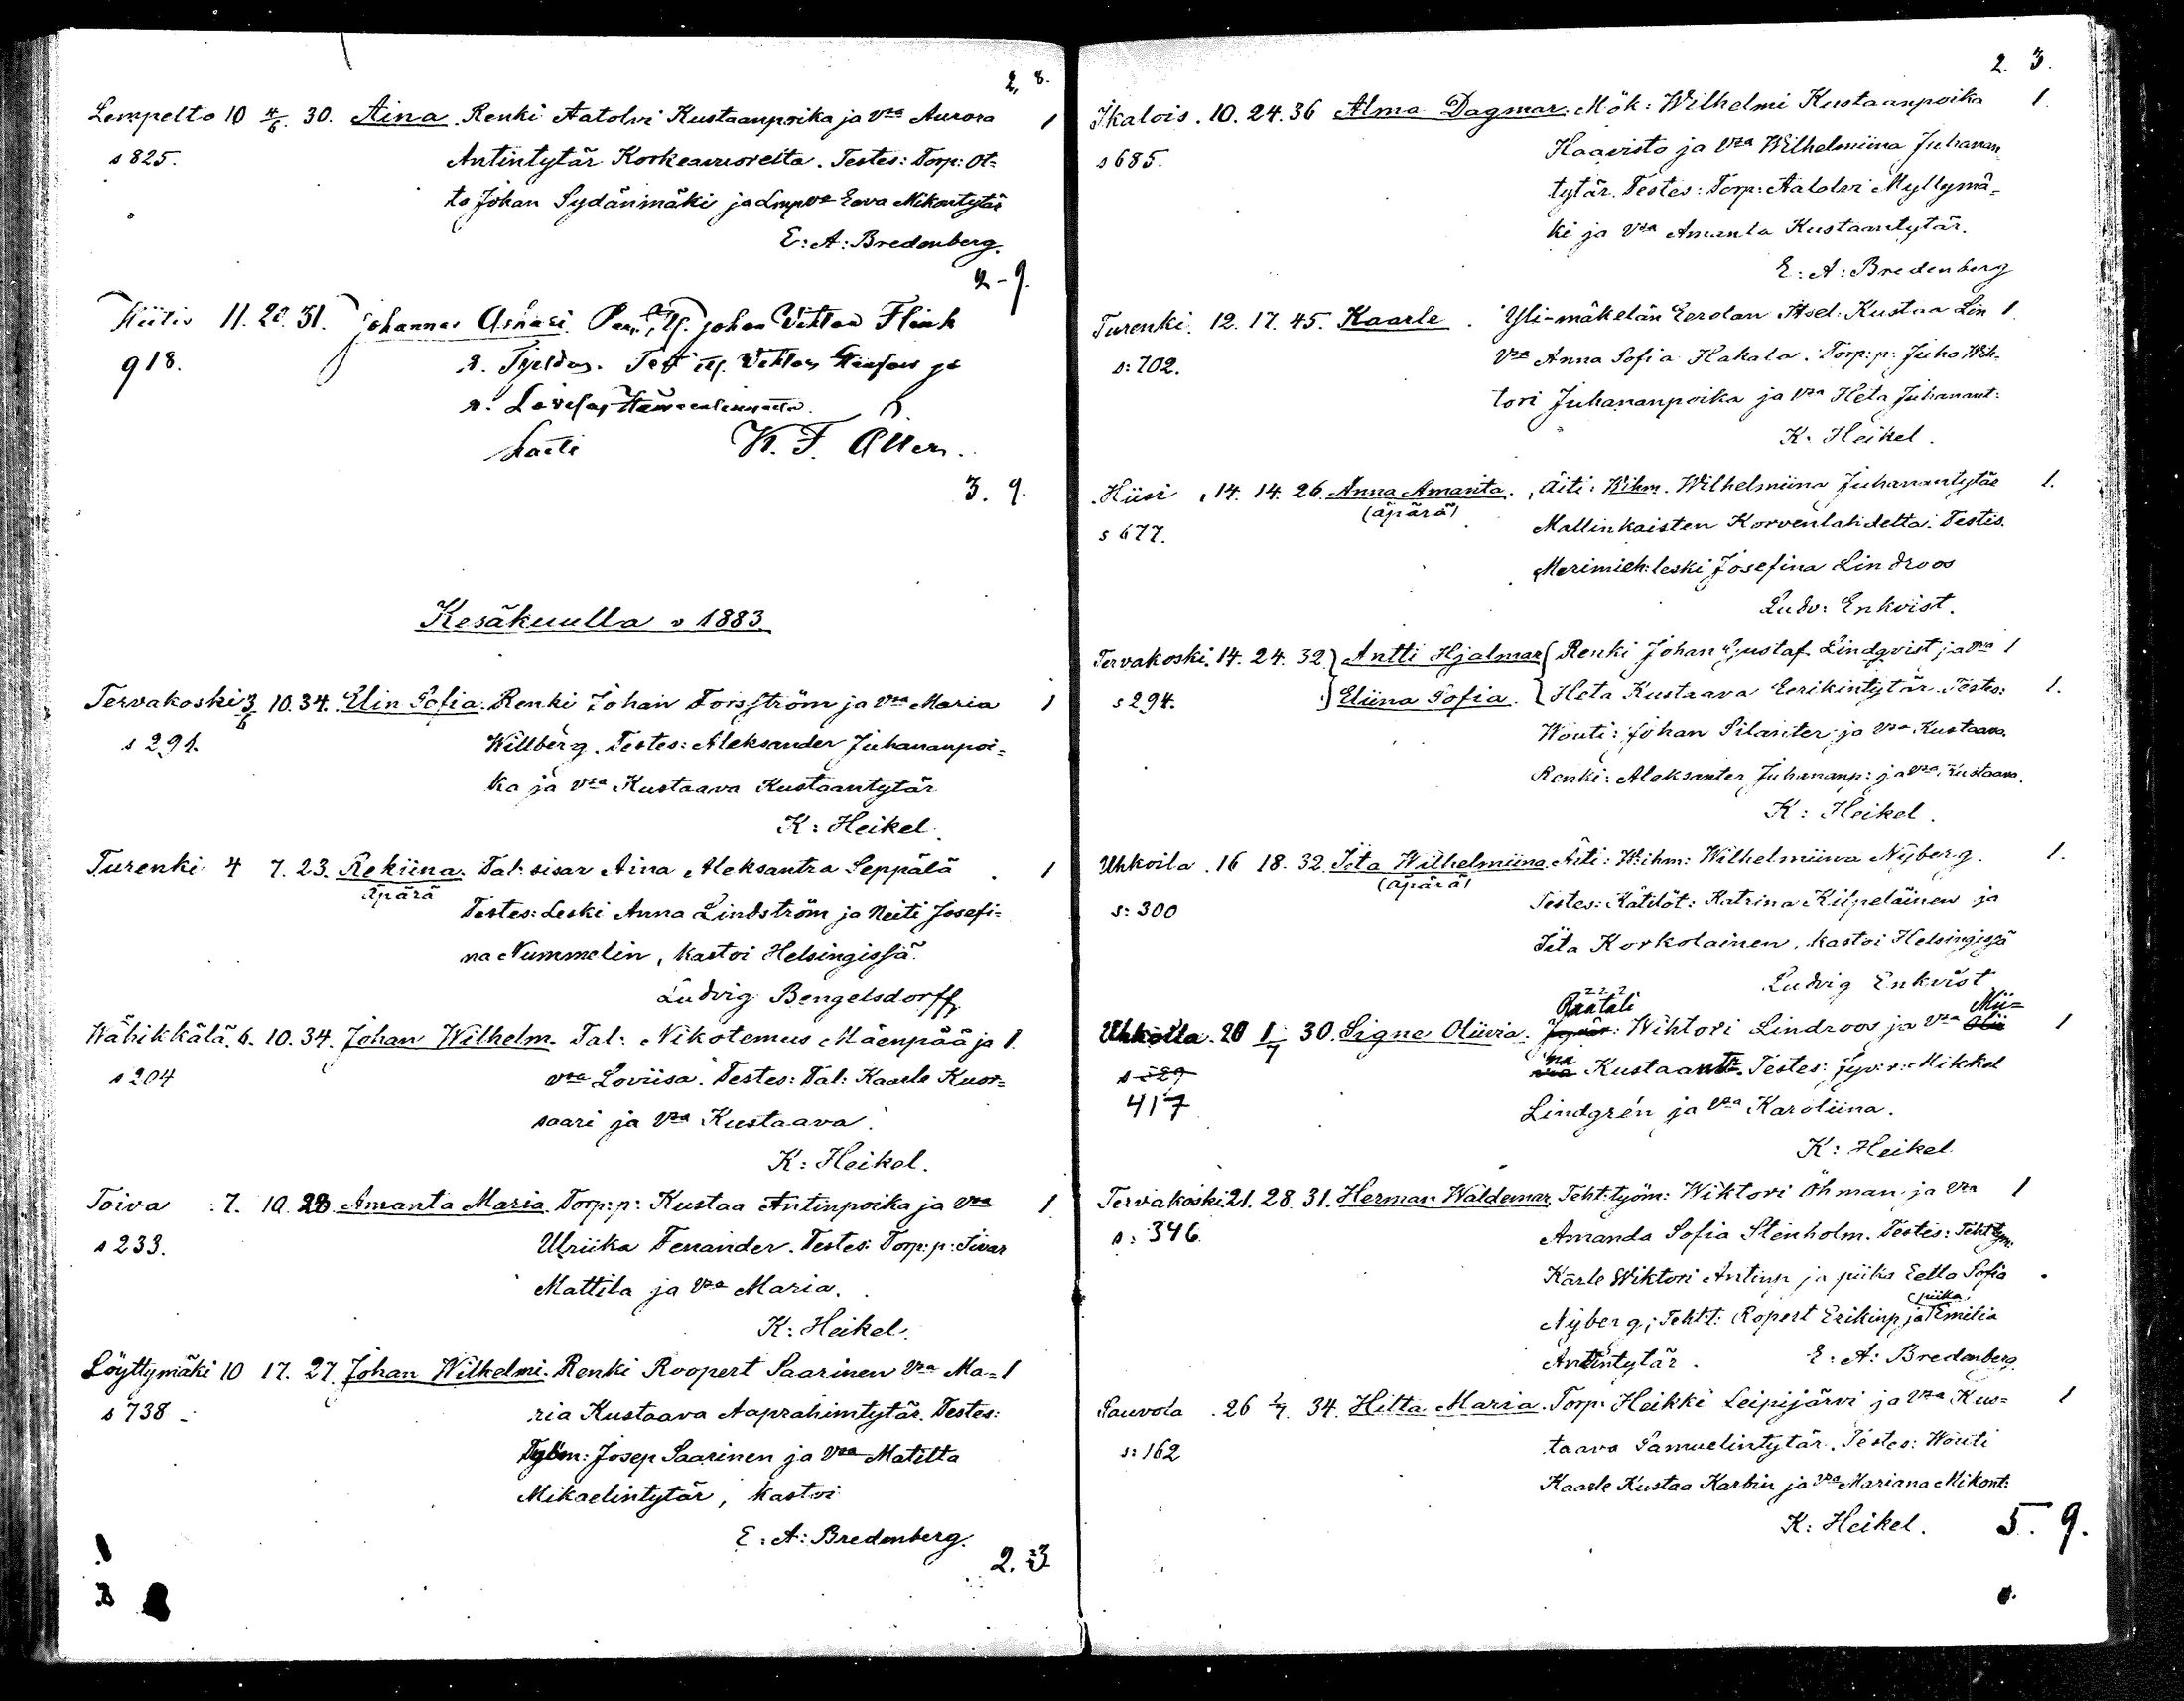 2, 8.
Lempelto 10 4/6. 30. Aina. Renki Aatolvi Kustaanpoika ja vza Aurora 1
s 825. Antintytär Korkeavuorelta. Testes: Torp: Ot=
to Johan Sydänmäki ja Lmp va Eeva Mikontytär
E: A: Bredenberg.
2 - 9.
11. 20. 31. Johannes johan Viktor Flink
918.
K. F.
3. 9.
Kesäkuulla v 1883.
Tervakoski 3/6 10. 34. Elin Sofia. Renki Johan Forsström ja vza Maria 1
s 291. Willberg. Testes: Aleksander Juhananpoi=
ka ja vza Kustaava Kustaantytär
K: Heikel.
Turenki 4 7. 23. Rekiina. Tal: sisar Aina Aleksantra Seppälä 1
äpärä
Testes: Leski Anna Lindström ja Neiti Josefi=
na Nummelin, kastoi Helsingissä.
Ludvig Bengelsdorff
Wähikkälä. 6. 10. 34. Johan Wilhelm. Tal: Nikotemus Mäenpää ja 1.
s 204 vza Loviisa. Testes: Tal: Kaarle Kuor=
saari ja vza Kustaava.
K: Heikel.
Toiva : 7. 10. 28 Amanta Maria. Torp:p: Kustaa Antinpoika ja vza 1
s 233. Ulriika Fenander. Testes: Torp:p: Iivar
Mattila ja vza Maria.
K: Heikel.
Löyttymäki 10 17. 27. Johan Wilhelmi. Renki Roopert Saarinen vza Ma= 1
s 738 - ria Kustaava Aaprahimtytär. Testes:
Työm: Josep Saarinen ja vza Matilta
Mikaelintytär, kastoi
E: A: Bredenberg.
2. 3
2. 3.
Ikalois. 10. 24. 36 Alma Dagmar. Mök: Wilhelmi Kustaanpoika 1.
s 685. Haavisto ja vza Wilhelmiina Juhanan
tytär. Testes: Torp: Aatolvi Myllymä=
ki ja vza Amanta Kustaantytär.
E: A: Bredenberg
Turenki. 12. 17. 45. Kaarle. Yli-mäkelän Eerolan Itsel: Kustaa Lin 1.
s: 702. vza Anna Sofia Hakala. Torp:p: Juho Wih-
tori Juhananpoika ja vza Heta Juhanant:
K. Heikel.
Hiisi 14. 14. 26. Anna Amanta. Äiti: Wihm. Wilhelmiina Juhanantytär 1.
(äpärä)
s 677. Mallinkaisten Korvenlahdelta. Testis.
Merimieh: leski Josefina Lindroos
Ludv: Enkvist.
Tervakoski. 14. 24. 32. } Antti Hjalmar { Renki Johan Gustaf Lindqvist ja vza 1
s 294. } Eliina Sofia. { Heta Kustaava Eerikintytär. Testes: 1.
Wouti: Johan Silanter ja vza Kustaava.
Renki: Aleksanter Juhananp: ja vza Kustaava.
K: Heikel.
Uhkoila. 16 18. 32. Iita Wilhelmiina. Äiti: Wihm: Wilhelmiina Nyberg. 1.
(äpärä)
s: 300 Testes: Kätilöt: Katrina Kilpeläinen ja
Iita Korkolainen, kastoi Helsingissä
Ludvig Enkvist
222
Räätäli Mii=
Uhkoila. 20 1/7 30. Signe Oliivia. Wihtori Lindroos ja vza Olii 1
na
via Kustaant. Testes: Jyv:r: Mikkel
417 Lindgrén ja vza Karoliina.
K: Heikel
Tervakoski 21. 28. 31. Herman Waldemar. Teht: työm: Wiktori Öhman ja vza 1
s: 346. Amanda Sofia Stenholm. Testes: Teht tym:
Karle Wiktori Antinp ja piika Eetla Sofia
piika
Nyberg; Teht:t: Ropert Erikinp, ja Emilia
Antintytär. E: A: Bredenberg.
Sauvola. 26 1/7. 34. Hilta Maria. Torp: Heikki Leipijärvi ja vza Kus= 1
s: 162 taava Samuelintytär. Testes: Wouti
Kaarle Kustaa Karbin ja vza Mariana Mikont:
K: Heikel. 5. 9.